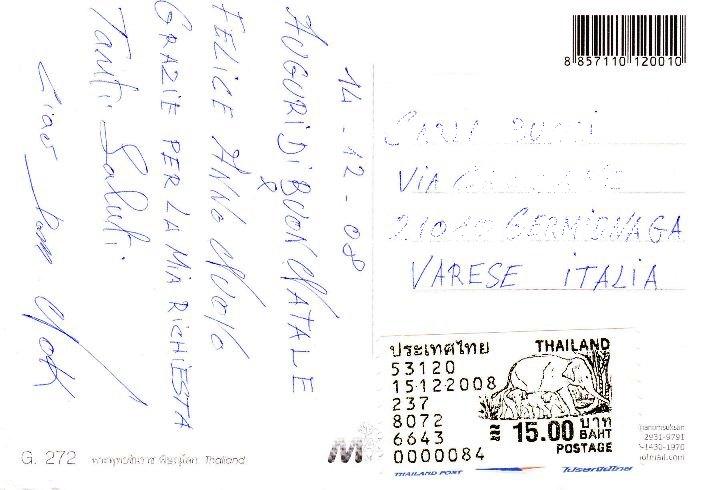 14-12-08
AUGURI DI BUON NATALE
&
FELICE ANNO NUOVO
GRAZIE PER LA MIA RICHIESTA
Tanti Saluti
Ciao
8 857110 120010
VIA
21010 GERMIGNAGA
VARESE ITALIA
ประเทศไทย
THAILAND
53120
15122008
237
8072
6643
0000084
15.00 บาท
BAHT
POSTAGE
THAILAND POST
ไปรษณีย์ไทย
2931-9791
-1430-1970
G. 272
Thailand
M